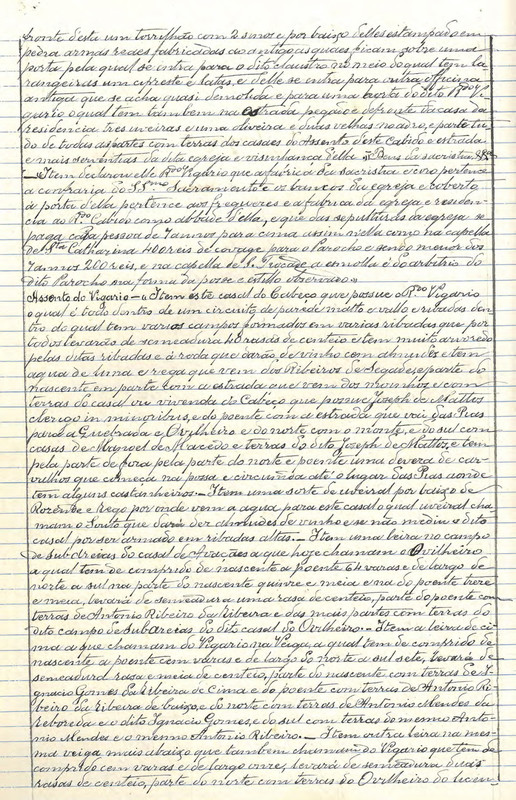 fronte desta um torrilhão com 2 sinos e por baixo delles estampado em
pedra armas reaes fabricadas ao antigo as quaes ficam sobre uma
porta pela qual se intra para o dito claustro no meio do qual tem la-
rangeiras um cypreste e latas, e delle se intra para outra officina
antiga que se acha quasi demolida e para uma horta do dito Rdo Vi-
gario o qual tem tambem na estrada pegão e defronte da casa da
residencia tres uveiras e uma oliveira e duas velhas no adro, e parte tu-
do de todas as partes com terras dos casaes do Assento deste Cabido e estrada
e mais serventias da dita egreja e visinhança della. Bens da sacristia
— Item declarou elle Rdo Vigario que a fabrica da sacristia e cera pertence
a confraria do SSmo Sacramento e os bancos da egreja e coberto
á porta della pertence aos freguezes e a fabrica da egreja e residen-
cia ao Rdo Cabido como abbade della, e que das sepulturas da egreja se
paga cada pessoa de 7 annos para cima assim nella como na capella
de Sta Catharina 400 reis de covage para o Parocho e sendo menor dos
7 annos 200 reis, e na capella de S. Trocade a esmolla é do arbitrio do
dito Parocho na forma da posse e estillo observado.
Assento do Vigario — Item este casal do Cabeço que possue o Rdo Vigario
o qual é todo dentro de um circuito de parede matto e vallo e ribadas den-
tro do qual tem varios campos formados em varias ribadas que por
todos levarão de semeadura 40 rasas de centeio e tem muito arvoredo
pelas ditas ribadas e á roda que darão de vinho cem almudes e tem
agua de lima e rega que vem dos Ribeiros de Segade, e parte do
nascente em parte com a estrada que vem dos moinhos e com
terras do casal ou vivenda do Cabeço que possue Joseph de Mattos
clerigo in minoribus, e do poente com a estrada que vai das Pias
para a Quebrada e Ovilheiro e do norte com o monte, e do sul com
casas de Manoel de Macedo e terras do dito Joseph de Mattos, e tem
pela parte de fora pela parte do norte e poente uma deveza de car-
valhos que começa na poça e circunda até o lugar das Pias aonde
tem alguns castanheiros. — Item uma sorte de uveiral por baixo de
Rozende e Rego por onde vem a agua para este casal o qual uveiral cha-
mam o Souto que dará dez almudes de vinho e se não mediu e dito
casal por ser armado em ribadas altas. — Item uma leira no campo
de Subareias do casal de Avações a que hoje chamam o Ovilheiro
a qual tem de comprido de nascente a poente 64 varas e de largo do
norte a sul na parte do nascente quinze e meia e na do poente treze
e meia, levará de semeadura uma rasa de centeio, parte do poente com
terras de Antonio Ribeiro da Ribeira e das mais partes com terras do
dito campo de Subareias do dito casal do Ovilheiro. — Item a leira de ci-
ma a que chamam do Vigario na Veiga, a qual tem de comprido de
nascente a poente cem varas e de largo do norte a sul sete, levará de
semeadura rasa e meia de centeio, parte do nascente com terras de I-
gnacio Gomes da Ribeira de Cima e do poente com terras de Antonio Ri-
beiro da Ribeira de baixo, e do norte com terras de Antonio Mendes da
Reboreda e o dito Ignacio Gomes, e do sul com terras do mesmo Anto-
nio Mendes e o mesmo Antonio Ribeiro. — Item outra leira na mes-
ma veiga mais abaixo que tambem chamam do Vigario que tem de
comprido cem varas e de largo onze, levará de semeadura duas
rasas de centeio, parte do norte com terras do Ovilheiro do licen-